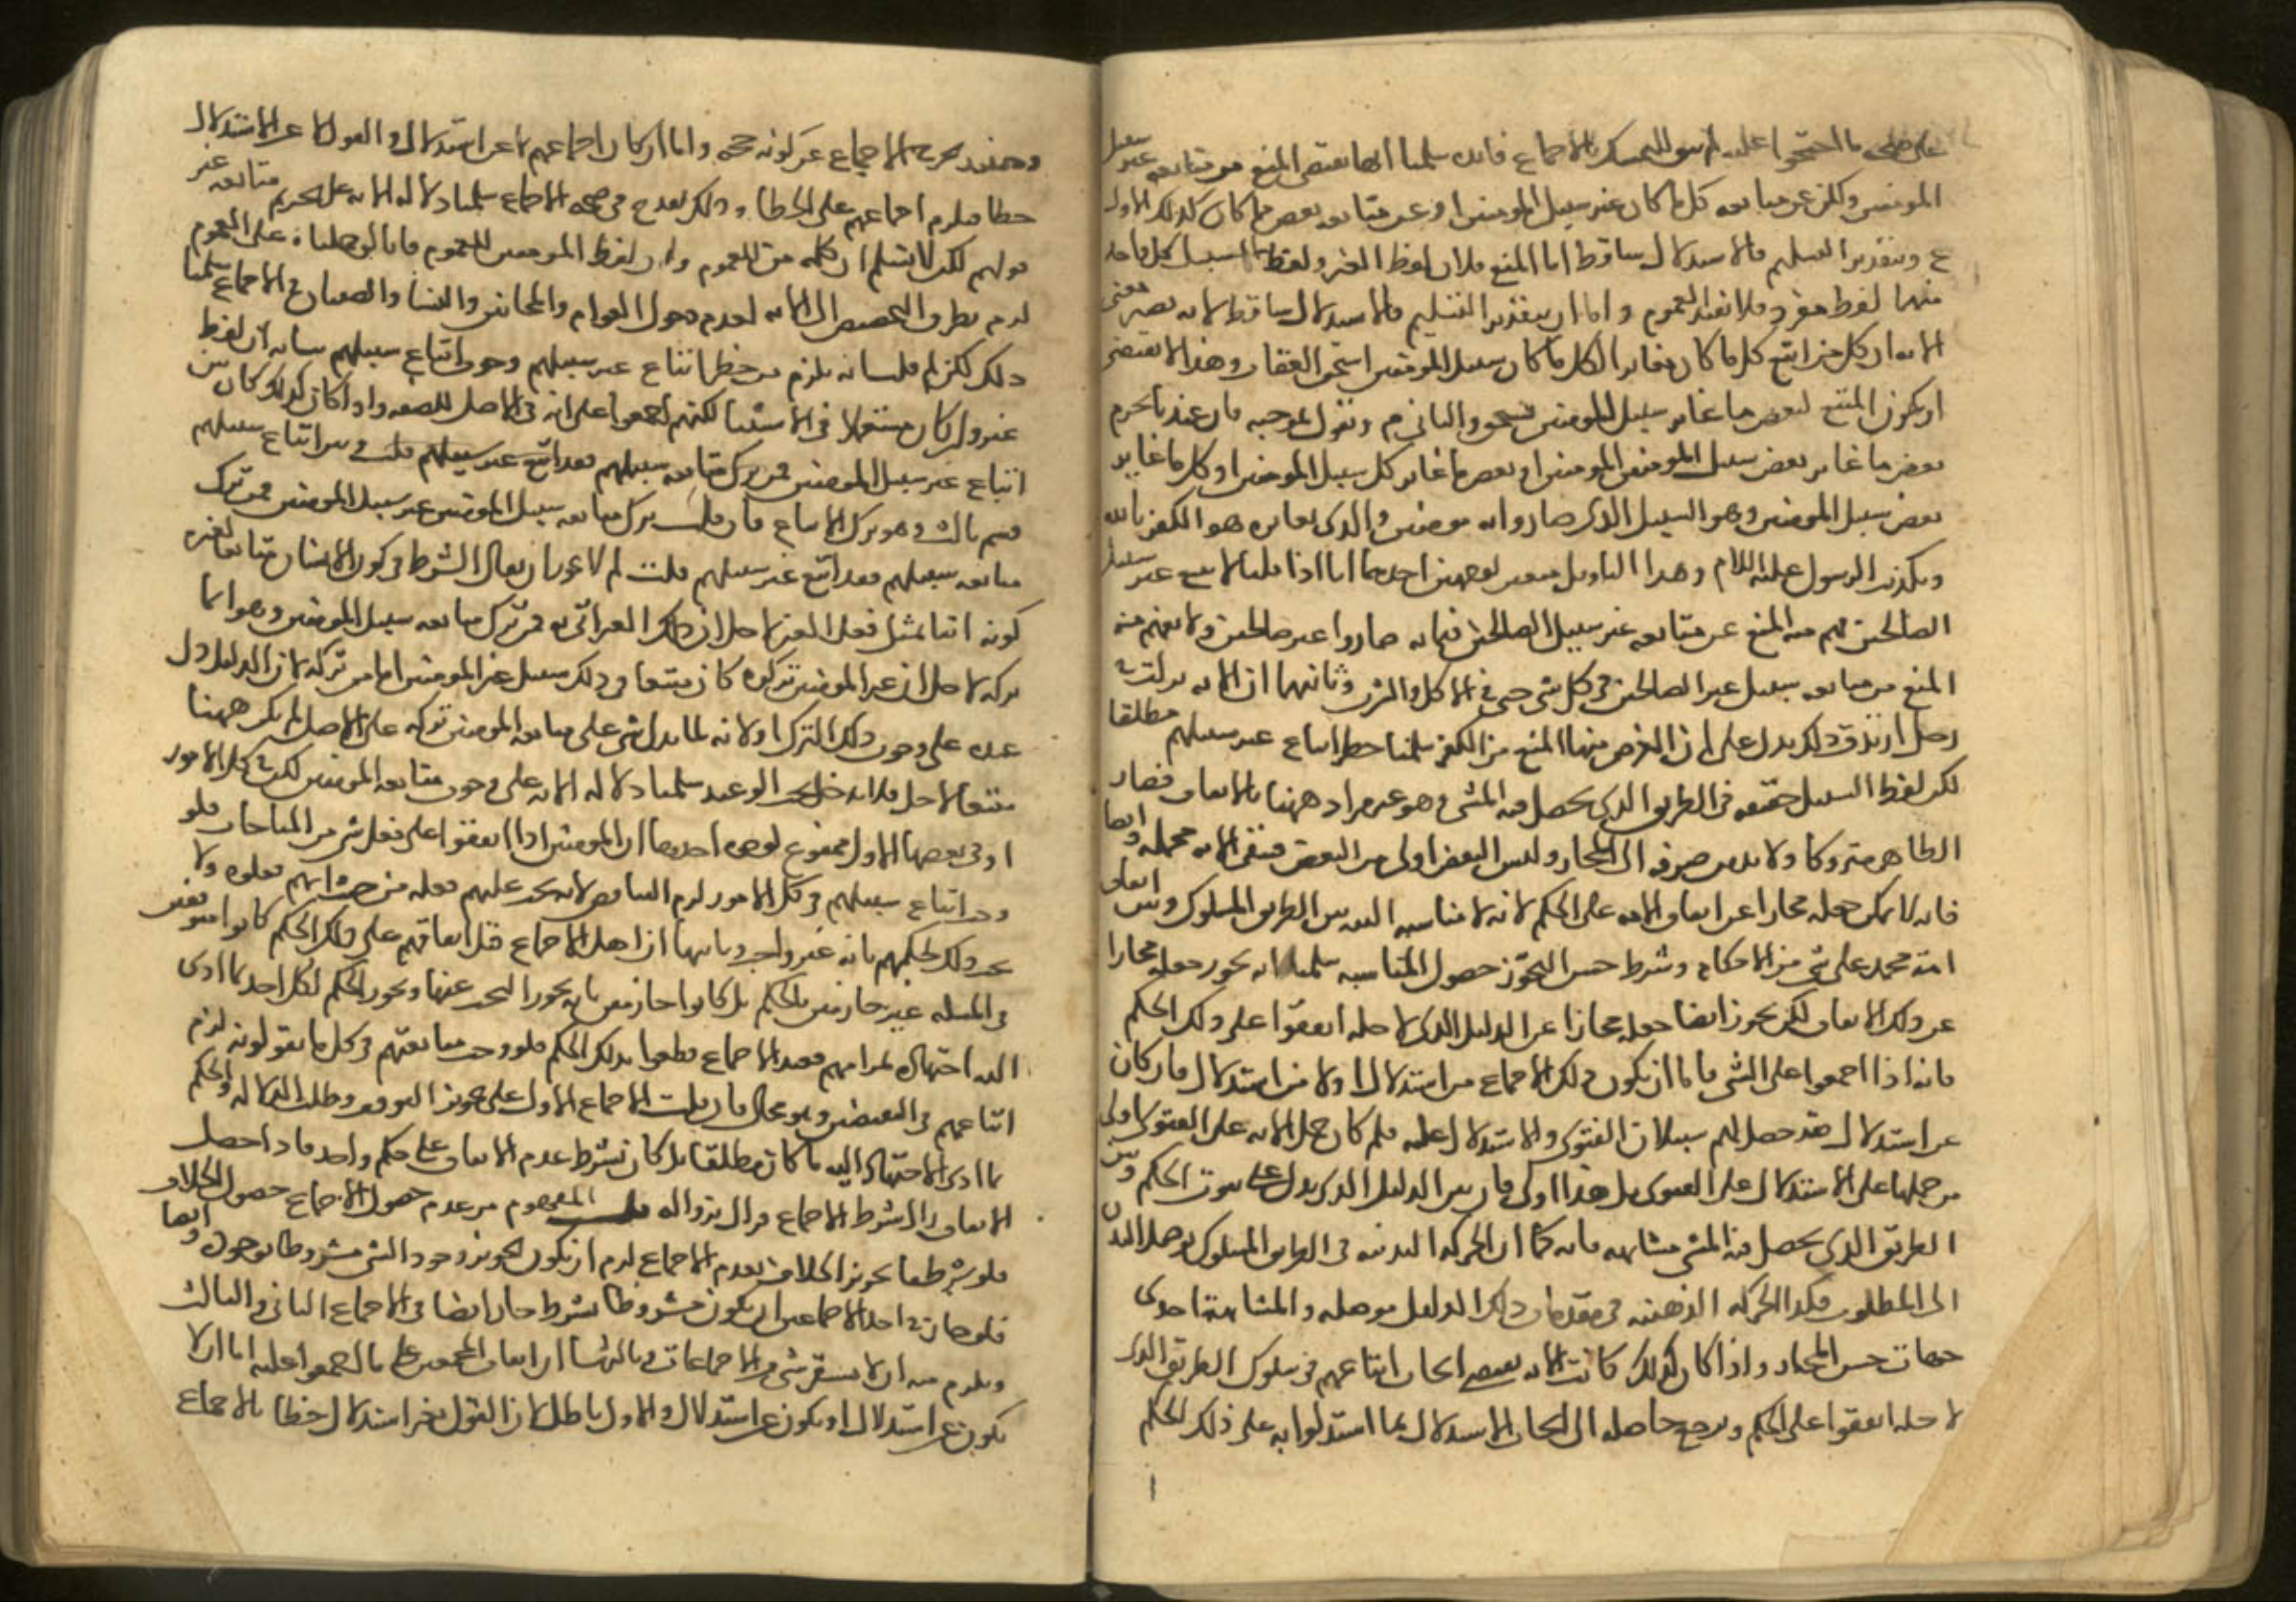 على خلاف ما احتجوا عليه لم يبق التمسك بالاجماع فائدة سلمنا انها تقتضى المنع من متابعة غير سبيل
المومنين ولكن عن متابعة كل ما كان غير سبيل المومنين او عن متابعة بعض ما كان كذلك الاول
ع وبتقدير التسليم فالاستدلال ساقط اما المنع فلان لفظ الغير ولفظ السبيل كل واحد
منهما لفظ مفرد فلا يفيد العموم واما ان بتقدير التسليم فالاستدلال ساقط لانه يصير معنى
الايه ان كل من اتبع كل ما كان مغايرا لكل ما كان سبيل المومنين استحق العقاب وهذا لا يقتضى
ان يكون المتبع لبعض ما غاير سبيل المومنين والثانى م ونقول بموجبه فان عندنا يحرم
بعض ما غاير بعض سبيل المومنين او بعض ما غاير كل سبيل المومنين او كل ما غاير
بعض سبيل المومنين وهو السبيل الذى صاروا به مومنين والذى يغايره هو الكفر بالله
وتكذيب الرسول عليه السلام وهذا التاويل متعين لوجهين احدهما انا اذا قلنا لا تتبع غير سبيل
الصالحين فهم منه المنع عن متابعة غير سبيل الصالحين فيما به صاروا غير صالحين ولا يفهم منه
المنع من متابعة سبيل غير الصالحين فى كل شى حتى فى الاكل والشرب وثانيها ان الايه نزلت فى
رجل ارتد وذلك يدل على ان الغرض منها المنع من الكفر سلمنا حظر اتباع غير سبيلهم مطلقا
لكن لفظ السبيل حقيقة فى الطريق الذى يحصل فيه المشى وهو غير مراد ههنا بالاتفاق فصار
الظاهر متروكا ولا بد من صرفه الى المجاز وليس البعض اولى من البعض فتبقى الايه مجملة وايضا
فانه لا يمكن جعله مجازا عن اتفاق الامه على الحكم لانه لا مناسبة البته بين الطريق المسلوك وبين اتفاق
امة محمد على شى من الاحكام وشرط حسن التجوز حصول المناسبة سلمنا انه يجوز جعله مجازا
عن ذلك الاتفاق لكن يجوز ايضا جعله مجازا عن الدليل الذى لاجله اتفقوا على ذلك الحكم
فانه اذا اجمعوا على الشى فاما ان يكون ذلك الاجماع من استدلال او لا من استدلال فان كان
عن استدلال فقد حصل لهم سبيلان الفتوى والاستدلال عليه فلم كان حمل الايه على الفتوى اولى
من حملها على الاستدلال على الفتوى بل هذا اولى فان بين الدليل الذى يدل على ثبوت الحكم وبين
الطريق الذى يحصل فيه المشى مشابهة فانه كما ان الحركة البدنيه فى الطريق المسلوك توصل البدن
الى المطلوب فكذا الحركة الذهنيه فى مقدمات ذلك الدليل موصلة والمشابهة احدى
جهات حسن المجاز واذا كان كذلك كانت الايه تقتضى ايجاب اتباعهم فى سلوك الطريق الذى
لاجله اتفقوا على الحكم ويرجع حاصله الى ايجاب الاستدلال بما استدلوا به على ذلك الحكم
وحينئذ يخرج الاجماع عن كونه حجة واما ان كان اجماعهم لا عن استدلال والقول لا عن الاستدلال
خطا فيلزم اجماعهم على الخطا وذلك يقدح فى صحة الاجماع سلمنا دلالة الايه على تحريم متابعة غير
قولهم لكن لا نسلم ان كلمة من للعموم وان لفظ المومنين للعموم فانا لو حملناه على العموم
لزم تطرق التخصيص الى الايه لعدم دخول العوام والمجانين والنسا والصبيان فى الاجماع سلمنا
ذلك لكن لم قلت انه يلزم من حظر اتباع غير سبيلهم وجوب اتباع سبيلهم بيانه ان لفظ
غير وان كان مستعملا فى الاستثنا لكنهم اجمعوا على انه فى الاصل للصفة واذا كان كذلك كان بين
اتباع غير سبيل المومنين فمن ترك متابعة سبيلهم فقد اتبع غير سبيلهم قلت وبين اتباع سبيلهم
قسم ثالث وهو ترك الاتباع فان قلت ترك متابعة سبيل المومنين غير سبيل المومنين فمن ترك
متابعة سبيلهم فقد اتبع غير سبيلهم قلت لم لا يجوز ان يقال الشرط فى كون الانسان متابعا لغيره
كونه اتيا بمثل فعل الغير لاجل ان ذلك الغير اتى به فمن ترك متابعة سبيل المومنين وهو انما
تركه لاجل ان غير المومنين تركوه كان متبعا فى ذلك سبيل غير المومنين اما من تركه لان الدليل دل
عنده على وجوب ذلك الترك او لانه لما لم يدل شى على متابعة المومنين تركه على الاصل لم يكن ههنا
متبعا لاحد فلا يدخل تحت الوعيد سلمنا دلالة الايه على وجوب متابعة المومنين لكن فى كل الامور
او فى بعضها الاول ممنوع لوجوه احدها ان المومنين اذا اتفقوا على فعل شى من المباحات فلو
وجب اتباع سبيلهم فى كل الامور لزم التناقض لانه يجب عليهم فعله من حيث انهم فعلوه ولا
يجب ذلك لحكمهم بانه غير واجب وثانيها ان اهل الاجماع قبل اتفاقهم على ذلك الحكم كانوا متوقفين
فى المسله غير جازمين بالحكم بل كانوا جازمين بانه يجوز البحث عنها ويجوز الحكم لكل احد بما ادى
اليه اجتهاده ثم انهم بعد الاجماع قطعوا بذلك الحكم فلو وجب متابعتهم فى كل ما يقولونه لزم
اتباعهم فى النقيضين وهو محال فان قلت الاجماع الاول على تجويز التوقف وطلب الدلالة والحكم
بما ادى الاجتهاد اليه ما كان مطلقا بل كان بشرط عدم الاتفاق على حكم واحد فاذا حصل
الاتفاق زال شرط الاجماع فزال بزواله قلت المفهوم من عدم حصول الاجماع حصول الخلاف
فلو شرطنا تجويز الخلاف بعدم الاجماع لزم ان يكون تجويز وجود الشى مشروطا بوجوده وايضا
فلو جاز فى احد الاجماعين ان يكون مشروطا بشرط جاز ايضا فى الاجماع الثانى والثالث
ويلزم منه ان لا يستقر شى من الاجماعات وثالثها ان اتفاق المجمعين على ما اجمعوا عليه اما ان لا
يكون عن استدلال او يكون عن استدلال والاول باطل لان القول بغير استدلال خطا بالاجماع